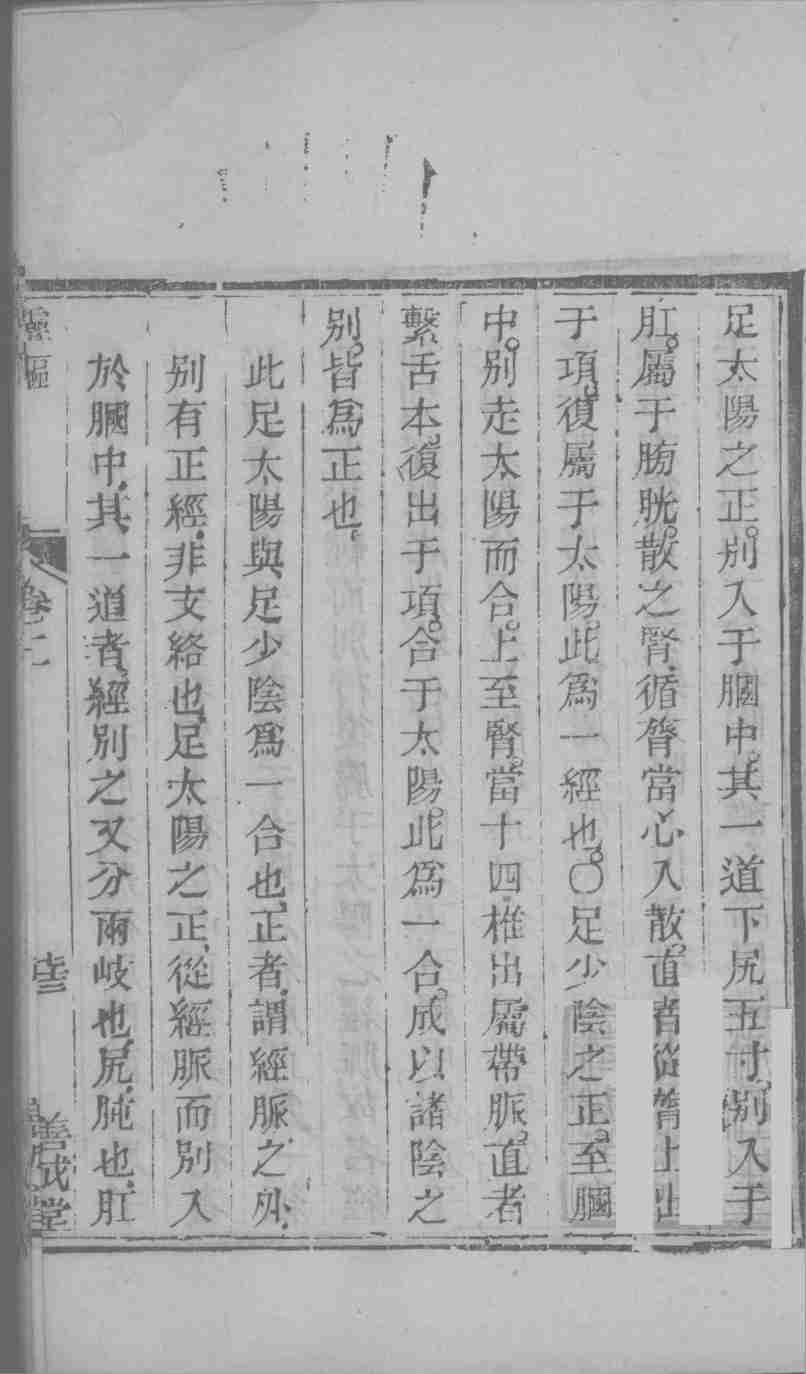 足太陽之正。別入于膕中。其一道下尻五寸。別入于
肛。屬于膀胱。散之腎、循膂當心入散。直者從膂上出
于項。復屬于太陽。此爲一經也。〇足少陰之正。至膕
中。別走太陽而合。上至腎。當十四椎出屬帶脈。直者
繫舌本。復出于項。合于太陽。此爲一合。成以諸陰之
別。皆爲正也、
此足太陽與足少陰爲一合也、正者、謂經脈之外、
別有正經、非支絡也、足太陽之正、從經脈而別入
於膕中、其一道者、經別之又分兩岐也、尻、肫也、肛
靈樞 卷二 善成堂